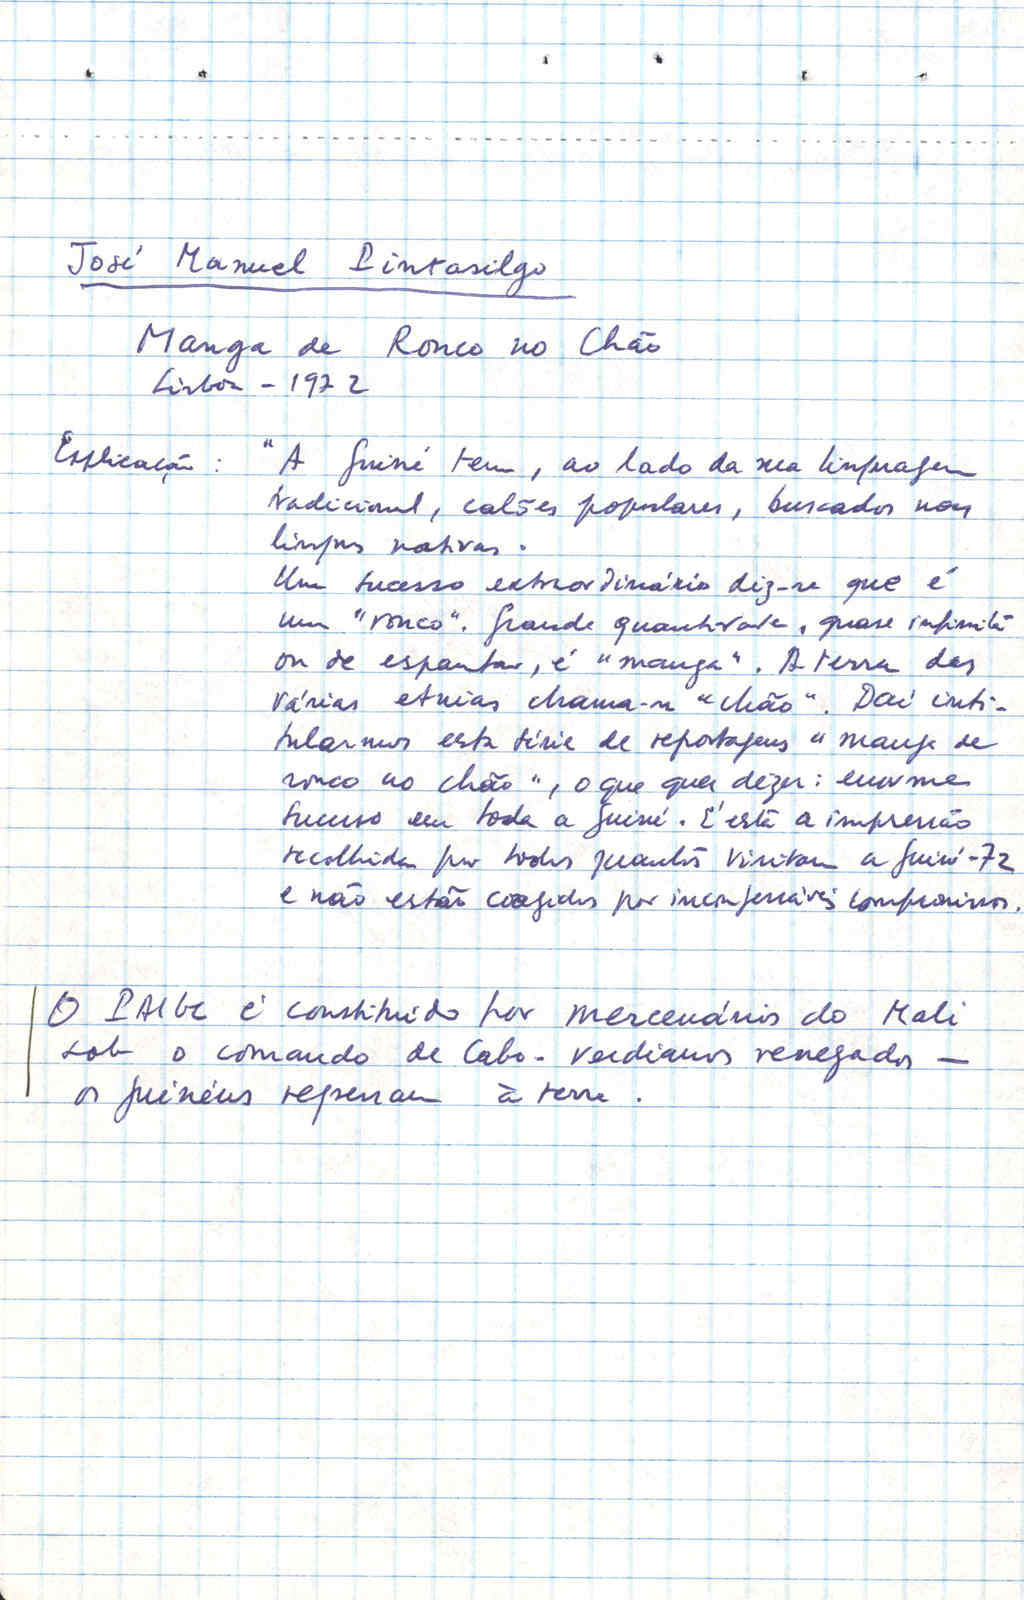 José Manuel Pintasilgo
Manga de Ronco no Chão
Lisboa - 1972
Explicação: "A Guiné tem, ao lado da sua linguagem
tradicional, calões populares, buscados nas
línguas nativas.
Um sucesso extraordinário diz-se que é
um "ronco". Grande quantidade, quase infinita
ou de espantar, é "manga". A terra das
várias etnias chama-se "chão". Daí inti-
tularmos esta série de reportagens "manga de
ronco no chão", o que quer dizer: enorme
sucesso em toda a Guiné. É esta a impressão
recolhida por todos quantos visitam a Guiné-72
e não estão coagidos por inconfessáveis compromissos.
O PAIGC é constituído por mercenários do Mali
sob o comando de Cabo-verdianos renegados —
os guinéus regressam à terra.